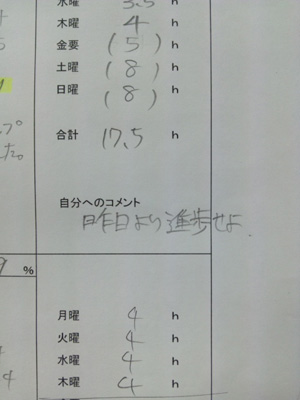 水曜 3.5 h
木曜 4 h
金要 (5) h
土曜 (8) h
日曜 (8) h
合計 17.5 h
自分へのコメント
昨日より進歩せよ.
%
月曜 4 h
火曜 4 h
水曜 4 h
木曜 4 h